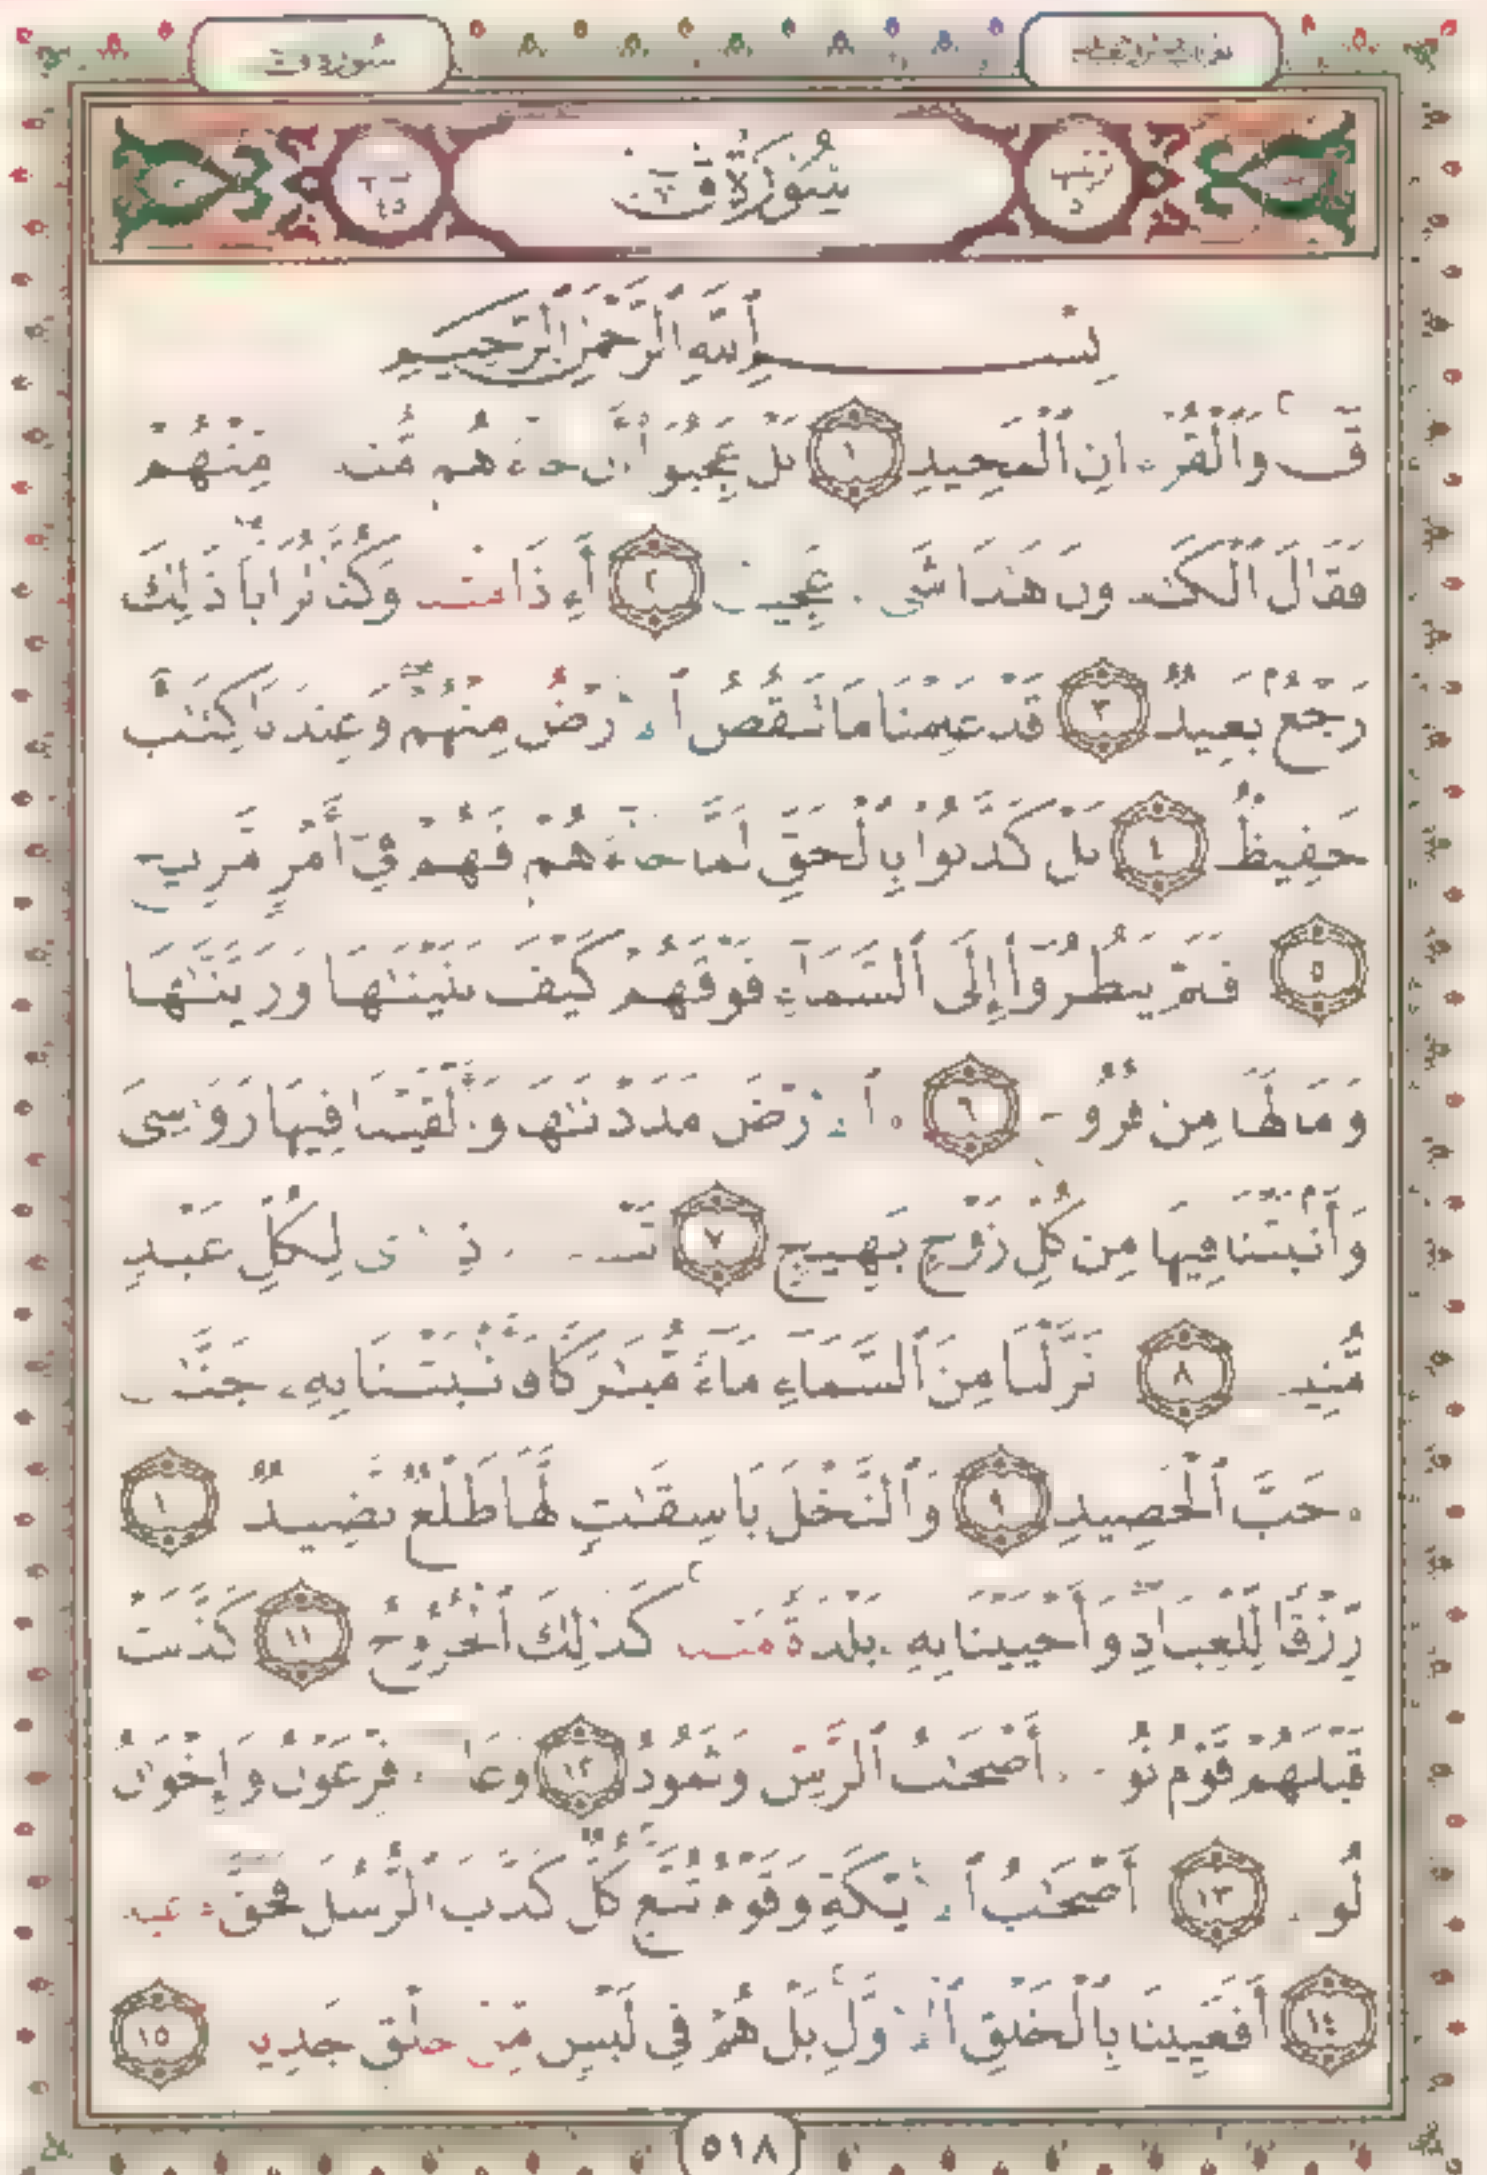 سُورَةُ ق
سُورَةُ قٓ
بِسْمِ ٱللَّهِ ٱلرَّحْمَٰنِ ٱلرَّحِيمِ
قٓ وَٱلْقُرْءَانِ ٱلْمَجِيدِ ١ بَلْ عَجِبُوٓا۟ أَن جَآءَهُم مِّنْهُمْ
فَقَالَ ٱلْكَٰفِرُونَ هَٰذَا شَىْءٌ عَجِيبٌ ٢ أَءِذَا مِتْنَا وَكُنَّا تُرَابًا ذَٰلِكَ
رَجْعٌۢ بَعِيدٌ ٣ قَدْ عَلِمْنَا مَا تَنقُصُ ٱلْأَرْضُ مِنْهُمْ وَعِندَنَا كِتَٰبٌ
حَفِيظٌۢ ٤ بَلْ كَذَّبُوا۟ بِٱلْحَقِّ لَمَّا جَآءَهُمْ فَهُمْ فِىٓ أَمْرٍ مَّرِيجٍ
٥ أَفَلَمْ يَنظُرُوٓا۟ إِلَى ٱلسَّمَآءِ فَوْقَهُمْ كَيْفَ بَنَيْنَٰهَا وَزَيَّنَّٰهَا
وَمَا لَهَا مِن فُرُوجٍ ٦ وَٱلْأَرْضَ مَدَدْنَٰهَا وَأَلْقَيْنَا فِيهَا رَوَٰسِىَ
وَأَنۢبَتْنَا فِيهَا مِن كُلِّ زَوْجٍۭ بَهِيجٍ ٧ لِكُلِّ عَبْدٍ
مُّنِيبٍ ٨ وَنَزَّلْنَا مِنَ ٱلسَّمَآءِ مَآءً مُّبَٰرَكًا فَأَنۢبَتْنَا بِهِۦ جَنَّٰتٍ
وَحَبَّ ٱلْحَصِيدِ ٩ وَٱلنَّخْلَ بَاسِقَٰتٍ لَّهَا طَلْعٌ نَّضِيدٌ ١٠
رِّزْقًا لِّلْعِبَادِ وَأَحْيَيْنَا بِهِۦ بَلْدَةً مَّيْتًا كَذَٰلِكَ ٱلْخُرُوجُ ١١ كَذَّبَتْ
قَبْلَهُمْ قَوْمُ نُوحٍ وَأَصْحَٰبُ ٱلرَّسِّ وَثَمُودُ ١٢ وَعَادٌ وَفِرْعَوْنُ وَإِخْوَٰنُ
لُوطٍ ١٣ وَأَصْحَٰبُ ٱلْأَيْكَةِ وَقَوْمُ تُبَّعٍ كُلٌّ كَذَّبَ ٱلرُّسُلَ فَحَقَّ وَعِيدِ
١٤ أَفَعَيِينَا بِٱلْخَلْقِ ٱلْأَوَّلِ بَلْ هُمْ فِى لَبْسٍ مِّنْ خَلْقٍ جَدِيدٍ ١٥
٥١٨